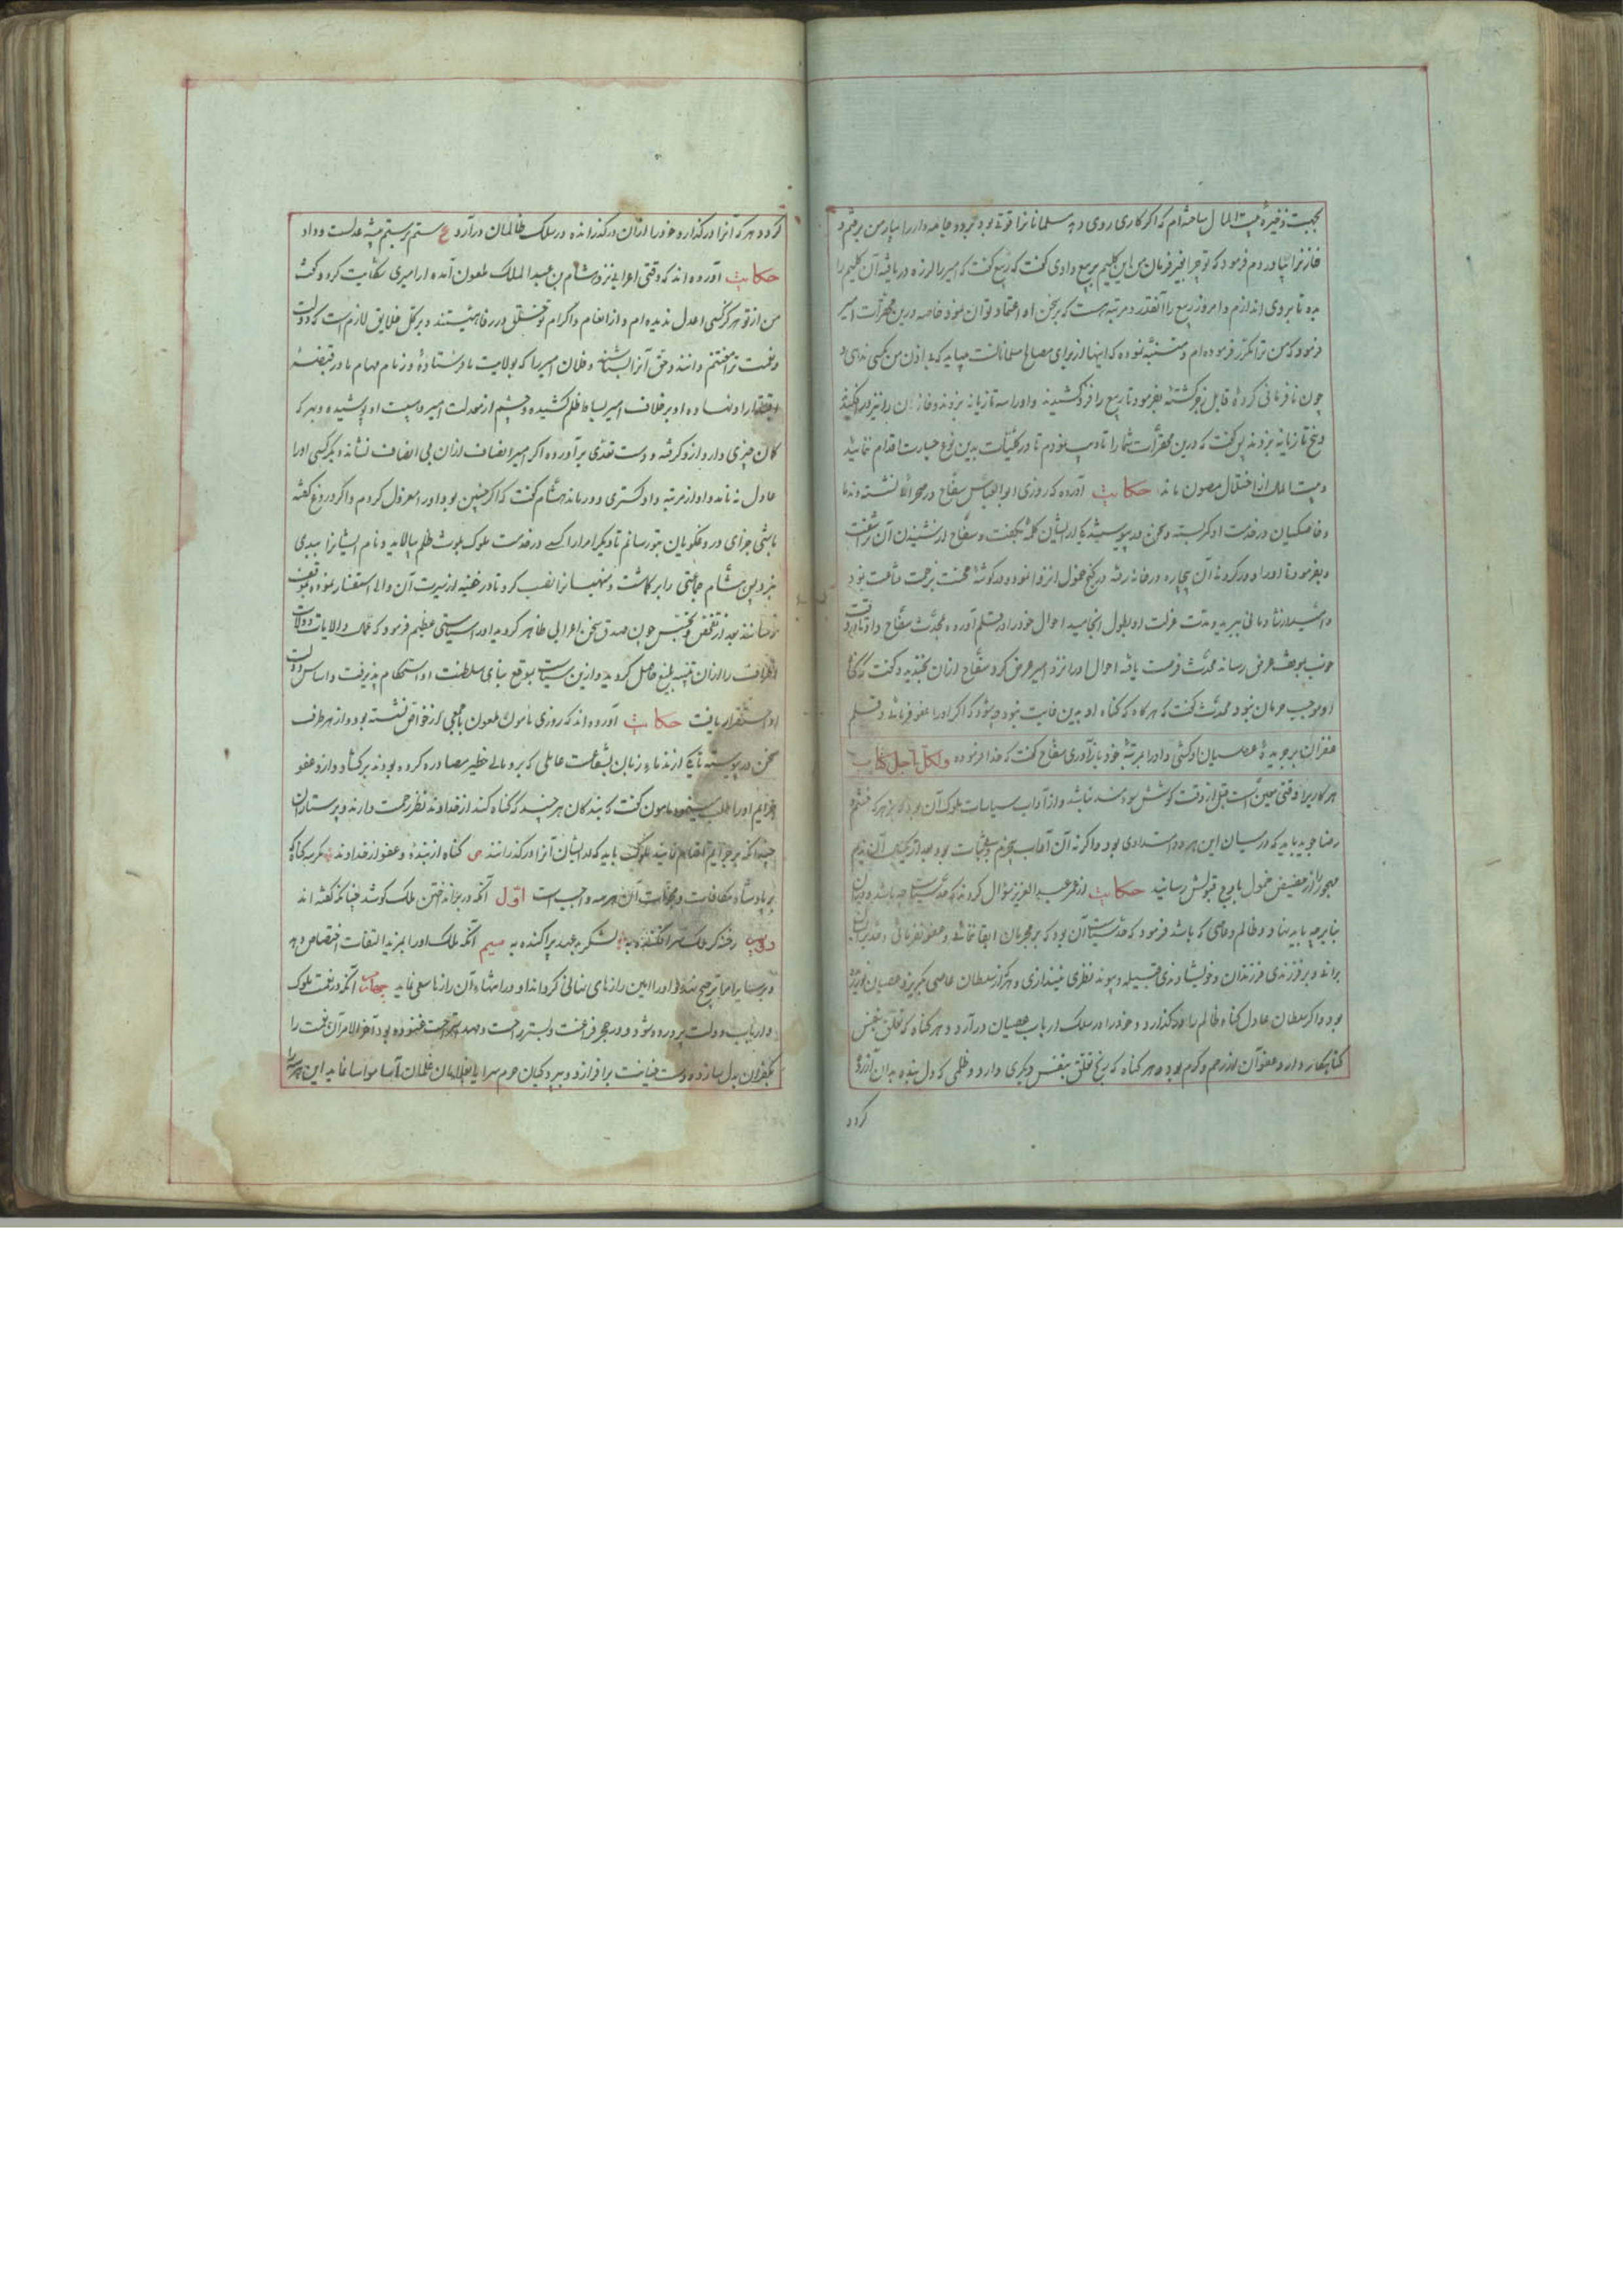 بجهت ذخیرهٔ بیت المال ساخته‌ام که اگر کاری روی دهد مسلمانانرا قوتی بود برود و جامه دار را بیار من برفتم و
خازنرا بیاوردم فرمود که تو چرا بغیر فرمان من این گلیم بربیع دادی گفت که ربیع گفت که امیر را لرزه دریافته آن گلیم را
بده تا بروی اندازم و امروز ربیع را آنقدر و مرتبه هست که بر سخن او اعتماد توان نمود خاصه درین محقرات امیر
فرمود که من ترا مکرر فرموده‌ام و متنبه نموده که اینها از برای مصالح مسلمانانست میباید که بی اذن من بکسی ندهی و
چون نافرمانی کردهٔ قابل زجر گشتهٔ بفرمود تا ربیع را فرو کشیدند و او را سه تازیانه بزدند و خازن را نیز در افکندند
و پنج تازیانه بزدند پس گفت که درین محقرات شما را تادیب نمودم تا در کلیات بدین نوع جسارت اقدام ننمایید
و بیت المال از اختلال مصون ماند حکایت آورده که روزی ابوالعباس سفاح در صحرا نشسته و ندما
و خاصگیان در خدمت او کمر بسته و سخن در پیوسته یکی از ایشان کلمه بگفت و سفاح از شنیدن آن برآشفت
و بفرمود تا او را دور کردند آن بیچاره در خانه رفته در کنج خمول انزوا نمود و در گوشهٔ محنت بزحمت قناعت نمود
چون بموقف عرض رساند محدث فرصت یافته احوال او را نزد امیر عرض کرد و سفاح ازان بخندید و گفت که گناه
او موجب حرمان نبود محدث گفت که هرگاه که گناه او بدین غایت نبود چه شود که اگر او را عفو فرمائی و قلم
غفران بر جریدهٔ عصیان او کشی و او را بمرتبهٔ خود باز آوری سفاح گفت که خدا فرموده ولکل اجل کتاب
هر کاریرا وقتی معین است قبل از وقت کوشش سودمند نباشد و از آداب سیاسات ملوک آن بود که بر هر که خشم
رضا جوید باید که در میان این هر دو امتدادی بود و اگر نه آن آداب بحزم و ثبات بود بعد از یکسال آن ندیم
مهجور را از حضیض خمول باوج قبولش رسانید حکایت از عمر عبدالعزیز سؤال کردند که حد سیاست چه باشد و
بنا بر چه باید نهاد و ظالم و عاصی که باشد فرمود که حد سیاست آن بود که بر مجرمان ابقا ننمائی و عفو نفرمائی و
براند و بر فرزندی فرزندان و خویشاوندی قبیله و پیوند نظری نیندازی و هر که از سلطان عاصی بگریزد عصیان
بود و اگر سلطان عادل گناه ظالم را در گذارد و خود را در سلک ارباب عصیان درآرد و هر گناه که تعلق بنفس
گناهکار دارد عفو آن از رحم و کرم بود و هر گناه که رنج تعلق بنفس دیگری دارد و ظلمی که دل بنده بدان آزرده
گردد
گردد و هر که آنرا در گذارد و خود را ازان در گذرانده در سلک ظالمان درآرد ع ستم بر ستم پیشه عدلست و داد
حکایت آورده‌اند که وقتی اعرابی نزد هشام بن عبد الملک ملعون آمده از امیری شکایت کرد و گفت
من از تو هرگز کسی اعدل ندیده‌ام و از انعام و اکرام تو خلق در رفاهیتند و بر کل خلایق لازم است که دولت
و نعمت ترا مغتنم دانند و حق آنرا بشناسند و فلان امیر را که بولایت ما فرستادهٔ و زمام مهام ما در قبضهٔ
اقتدار او نهاده او بر خلاف امیر بساط ظلم کشیده و چشم از معدلت امیر و سیاست او پوشیده و هر که
گمان چیزی دارد ازو گرفته و دست تعدی برآورده اگر امیر انصاف ازان بی انصاف نستاند دیگر کسی او را
عادل نداند و او از مرتبه دادگستری دور ماند هشام گفت که اگر چنین بود او را معزول کردم و اگر دروغ گفته
باشی جزای دروغگویان بتو رسانم تا دیگر امرا را کسی در خدمت ملوک بلوث ظلم نیالاید و نام ایشانرا ببدی
نبرد پس هشام جماعتی را برگماشت و منهیانرا نصب کرد تا در خفیه از سیرت آن والی استفسار نموده بموقف
رسانند بعد از تفحص و تجسس چون صدق سخن اعرابی ظاهر گردید او را سیاستی عظیم فرمود که عمال و ولایات و ولات
اطراف را ازان تنبیه بلیغ حاصل گردید و ازین سیاست بموقع بنای سلطنت او استحکام پذیرفت و اساس دولت
او استقرار یافت حکایت آورده‌اند که روزی مامون ملعون با جمعی از خواص نشسته بود و از هر طرف
سخن در پیوسته تا یکی از ندماء زبان بشفاعت عاملی که بر و مالی خطیر مصادره کرده بودند برگشاد و ازو عفو
جرایم او را طلب مینمود مامون گفت که بندگان هر چند که گناه کنند از خداوند نظر رحمت دارند و پرستاران
چندانکه بر جرایم اقدام نمایند ملوک باید که از ایشان آنرا در گذرانند ص گناه از بنده و عفو از خداوند مگر سه گناه که
بر پادشاه مکافات و مجازات آن هر سه واجب است اول آنکه در برانداختن ملک کوشد چنانکه گفته‌اند
رخنه گر ملک سر افکنده به لشکر بد عهد پراکنده به سیم آنکه ملک او را بمزید التفات اختصاص دهد
و بر سایر امرا ترجیح نهد و او را امین رازهای نهانی گرداند او در افشاء آن رازها سعی نماید چهارم آنکه در نعمت ملوک
و ارباب دولت پرورده شود و در حجر فراغت و بستر راحت و مهد استراحت غنوده بود آخر الامر آن نعمت را
بکفران بدل سازد و دست خیانت برافرازد و